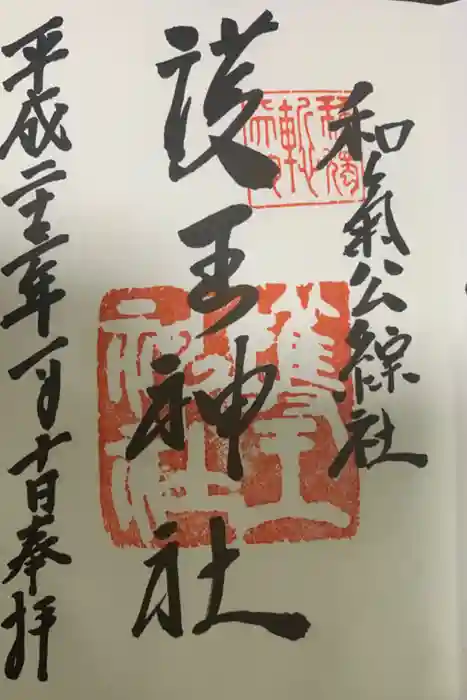 和氣公綜社
護王神社
平成二十三年一月十日奉拝
護王
神社